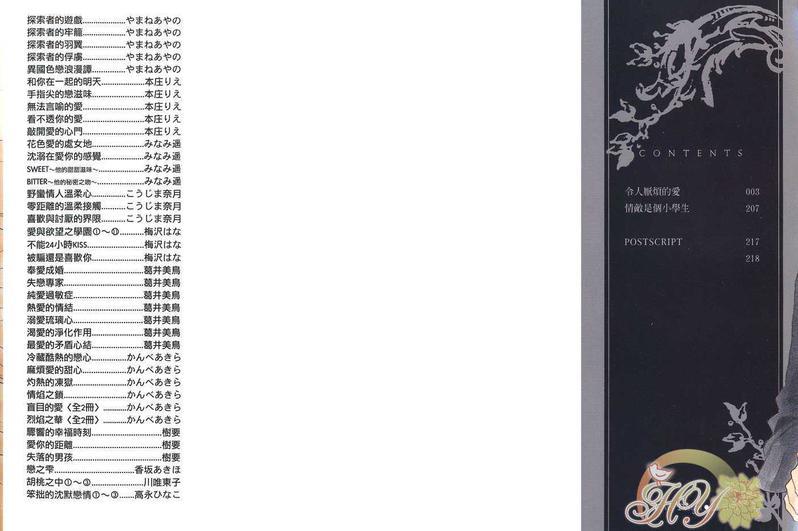 探索者的遊戲....................やまねあやの
探索者的牢籠....................やまねあやの
探索者的羽翼....................やまねあやの
探索者的俘虜....................やまねあやの
異國色戀浪漫譚................やまねあやの
和你在一起的明天....................本庄りえ
手指尖的戀滋味........................本庄りえ
無法言喻的愛............................本庄りえ
看不透你的愛............................本庄りえ
敲開愛的心門............................本庄りえ
花色愛的處女地........................みなみ遥
沈溺在愛你的感覺....................みなみ遥
SWEET～他的甜甜滋味～....................みなみ遥
BITTER～他的秘密之吻～....................みなみ遥
野蠻情人溫柔心................こうじま奈月
零距離的溫柔接觸............こうじま奈月
喜歡與討厭的界限............こうじま奈月
愛與欲望之學園①～⑬..........梅沢はな
不能24小時KISS........................梅沢はな
被騙還是喜歡你........................梅沢はな
奉愛成婚....................................葛井美鳥
失戀專家....................................葛井美鳥
純愛過敏症................................葛井美鳥
熱愛的情結................................葛井美鳥
溺愛琉璃心................................葛井美鳥
渴愛的淨化作用........................葛井美鳥
最愛的矛盾心結........................葛井美鳥
冷藏酷熱的戀心................かんべあきら
麻煩愛的甜心....................かんべあきら
灼熱的凍獄........................かんべあきら
情焰之鎖............................かんべあきら
盲目的愛〈全2冊〉..........かんべあきら
烈焰之華〈全2冊〉..........かんべあきら
驟響的幸福時刻................................樹要
愛你的距離........................................樹要
失落的男孩........................................樹要
戀之雫....................................香坂あきほ
胡桃之中①～③........................川唯東子
笨拙的沈默戀情①～③......高永ひなこ
CONTENTS
令人厭煩的愛 003
情敵是個小學生 207
POSTSCRIPT 217
218
HY